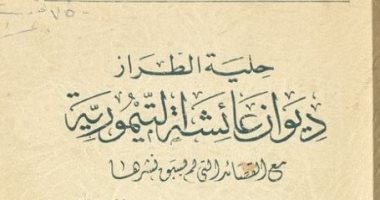 حلية الطراز
ديوان عائشة التيمورية
مع القصائد التي لم يسبق نشرها